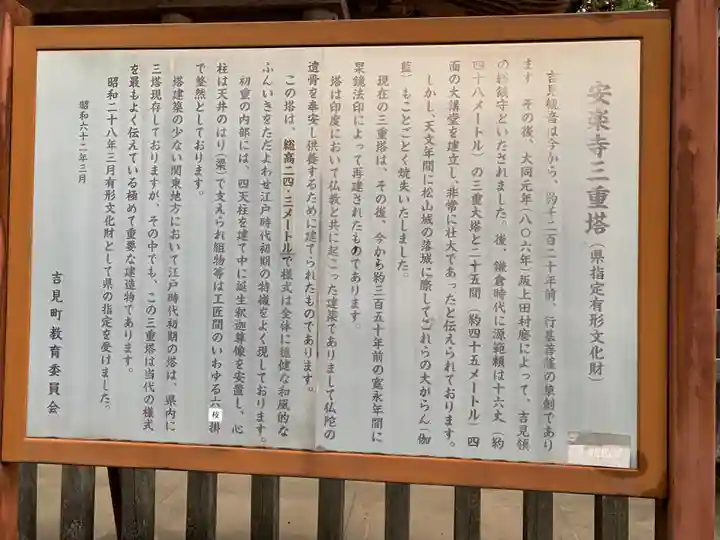 安楽寺三重塔(県指定有形文化財)
吉見観音は今から、約千二百二十年前、行基菩薩の草創であり
ます その後、大同元年(八〇六年)坂上田村磨によって、吉見領
の総鎮守といたされました。後、鎌倉時代に源範頼は十六丈(約
四十八メートル)の三重大塔と二十五間(約四十五メートル)四
面の大講堂を建立し、非常に壮大であったと伝えられております。
しかし、天文年間に松山城の落城に際してこれらの大がらん(伽
藍)もことごとく焼失いたしました。
現在の三重塔は、その後、今から約三百五十年前の寛永年間に
杲鏡法印によって再建されたものであります。
塔は印度において仏教と共に起こった建築でありまして仏陀の
遺骨を奉安し供養するために建てられたものであります。
この塔は、総高二四・三メートルで様式は全体に穏健な和風的な
ふんいきをただよわせ江戸時代初期の特徴をよく現しております。
初重の内部には、四天柱を建て中に誕生釈迦尊像を安置し、心
柱は天井のはり(梁)で支えられ組物等は工匠間のいわゆる六枝掛
で整然としております。
塔建築の少ない関東地方において江戸時代初期の塔は、県内に
三塔現存しておりますが、その中でも、この三重塔は当代の様式
を最もよく伝えている極めて重要な建造物であります。
昭和二十八年三月有形文化財として県の指定を受けました。
昭和六十二年三月
吉見町教育委員会